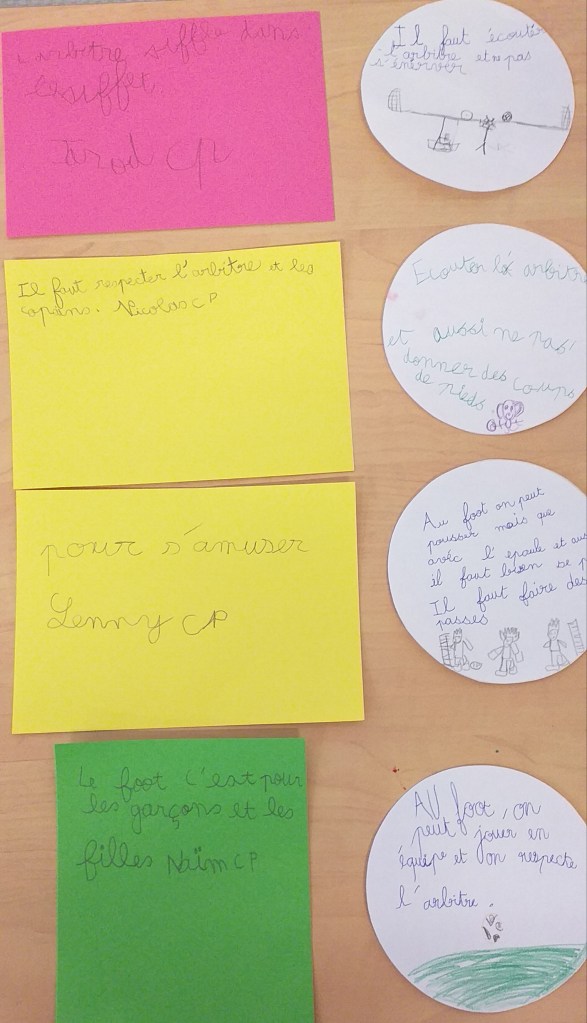 l'arbitre siffle dans
le sifflet
CP
Il faut respecter l'arbitre et les
copains. Nicolas CP
pour s'amuser
Lenny CP
Le foot c'est pour
les garçons et les
filles Naïm CP
Il faut écouter
l'arbitre et ne pas
s'énerver
Ecouter lé arbitre
et aussi ne pas
donner des coups
de pieds
Au foot on peut
pousser mais que
avéc l'épaule et aus
il faut bien se p
Il faut faire des
passes
AU foot, on
peut jouer en
équipe et on respecte
l'arbitre.